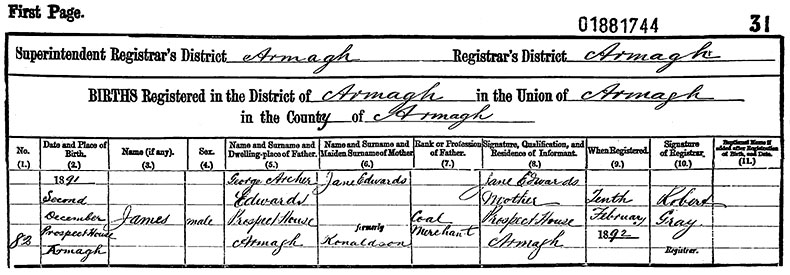 First Page.
01881744
31
Superintendent Registrar's District Armagh Registrar's District Armagh
BIRTHS Registered in the District of Armagh in the Union of Armagh
in the County of Armagh
No. (1.)
Date and Place of Birth. (2.)
Name (if any). (3.)
Sex. (4.)
Name and Surname and Dwelling-place of Father. (5.)
Name and Surname and Maiden Surname of Mother. (6.)
Rank or Profession of Father. (7.)
Signature, Qualification, and Residence of Informant. (8.)
When Registered. (9.)
Signature of Registrar. (10.)
Baptismal Name if added after Registration of Birth, and Date. (11.)
82
1891
Second
December
Prospect House
Armagh
James
male
George Archer
Edwards
Prospect House
Armagh
Jane Edwards
formerly
Ronaldson
Coal
Merchant
Jane Edwards
Mother
Prospect House
Armagh
Tenth
February
1892
Robert
Gray
Registrar.